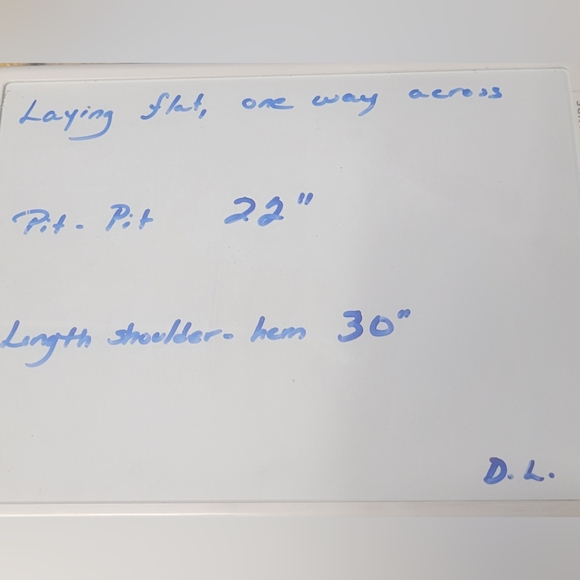 Laying flat, one way across
Pit - Pit 22"
Length shoulder - hem 30"
D. L.